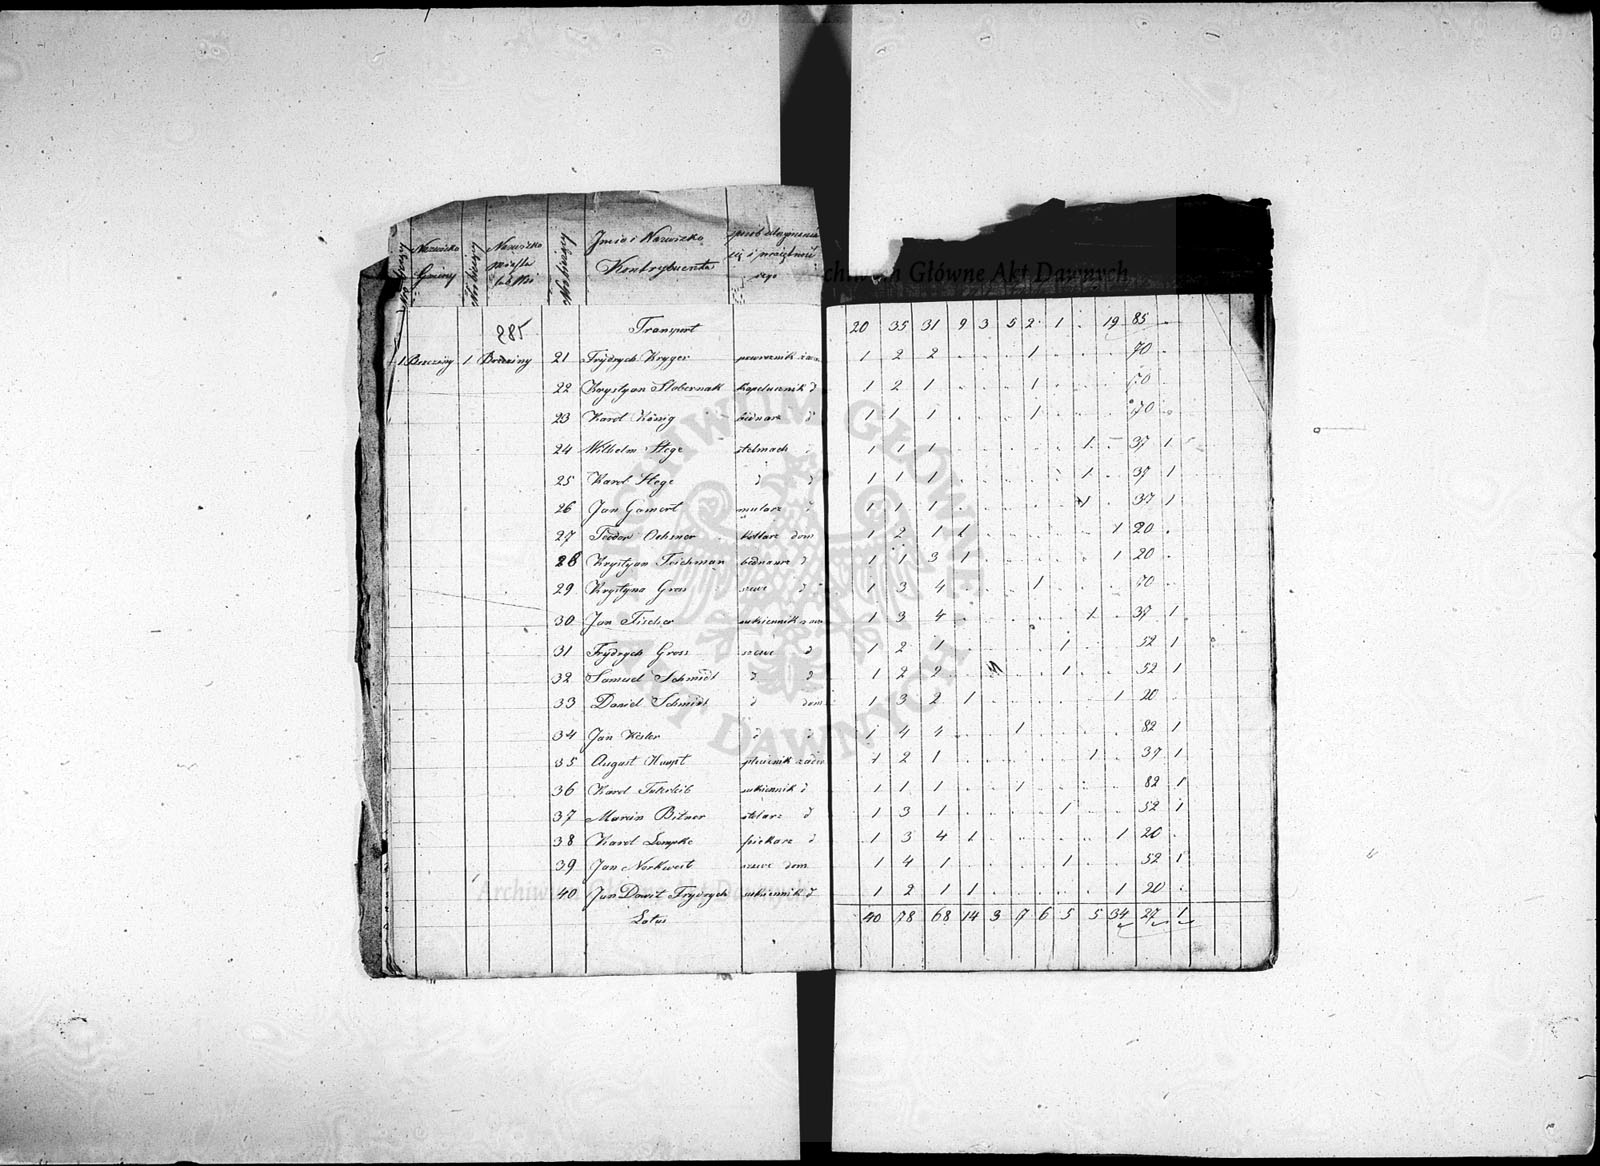 Nazwisko Gminy
Nazwisko
Jmie i Nazwisko Kontrybuenta
285 Transport 20 35 31 9 3 5 2 1 . 19 85
1 Brzeziny 1 Brzeziny 21 Frydrych Kryger powroznik 1 2 2 1 70
22 Krystyan kapelusznik d 1 2 1 1 70
23 Karol König bednarz d 1 1 1 1 70
24 Wilhelm Stege stelmach d 1 1 1 1 37 1
25 Karol Stege d d 1 1 1 1 37 1
26 Jan Gamert mularz d 1 1 1 1 37 1
27 Teodor kotlarz dom 1 2 1 1 1 20
28 Krystyan Teichman bednarz d 1 1 3 1 1 20
29 Krystyna Gros szewc d 1 3 4 1 70
30 Jan Fischer sukiennik 1 3 4 1 37 1
31 Frydrych Gross szewc d 1 2 1 1 52 1
32 Samuel Schmidt d d 1 2 2 1 52 1
33 Daniel Schmidt d dom 1 3 2 1 1 20
34 Jan d d 1 4 4 1 82 1
35 August Haupt 1 2 1 1 37 1
36 Karol sukiennik d 1 1 1 1 82 1
37 Marcin Bitner stolarz d 1 3 1 1 52 1
38 Karol Lempke piekarz d 1 3 4 1 1 20
39 Jan szewc dom 1 4 1 1 52 1
40 Jan Dawid Frydrych sukiennik d 1 2 1 1 1 20
Latus 40 78 68 14 3 7 6 5 5 34 27 1
Archiwum Główne Akt Dawnych
ARCHIWUM GŁÓWNE AKT DAWNYCH
Archiwum Główne Akt Dawnych